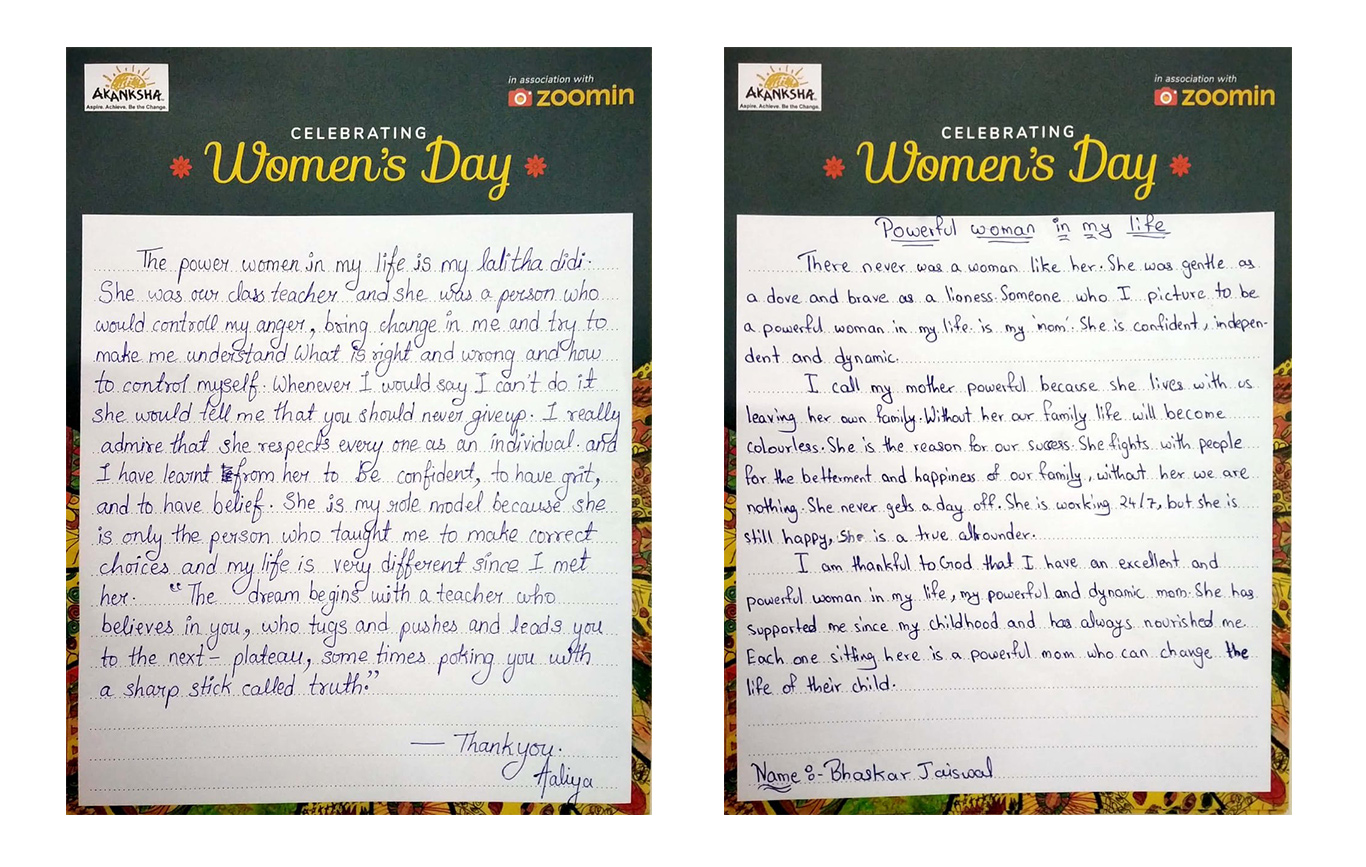 AKANKSHA
Aspire. Achieve. Be the Change.
in association with
zoomin
CELEBRATING
Women's Day
The power women in my life is my lalitha didi.
She was our class teacher and she was a person who
would controll my anger, bring change in me and try to
make me understand What is right and wrong and how
to control myself. Whenever I would say I can't do it
she would tell me that you should never giveup. I really
admire that she respects every one as an individual. and
I have learnt from her to Be confident, to have grit,
and to have belief. She is my role model because she
is only the person who taught me to make correct
choices and my life is very different since I met
her. "The dream begins with a teacher who
believes in you, who tugs and pushes and leads you
to the next - plateau, some times poking you with
a sharp stick called truth."
— Thankyou.
Aaliya
AKANKSHA
Aspire. Achieve. Be the Change.
in association with
zoomin
CELEBRATING
Women's Day
Powerful woman in my life
There never was a woman like her. She was gentle as
a dove and brave as a lioness. Someone who I picture to be
a powerful woman in my life is my 'mom'. She is confident, indepen-
dent and dynamic.
I call my mother powerful because she lives with us
leaving her own family. Without her our family life will become
colourless. She is the reason for our success. She fights with people
for the betterment and happiness of our family, without her we are
nothing. She never gets a day off. She is working 24/7, but she is
still happy, She is a true allrounder.
I am thankful to God that I have an excellent and
powerful woman in my life, my powerful and dynamic mom. She has
supported me since my childhood and has always nourished me.
Each one sitting here is a powerful mom who can change the
life of their child.
Name :- Bhaskar Jaiswal